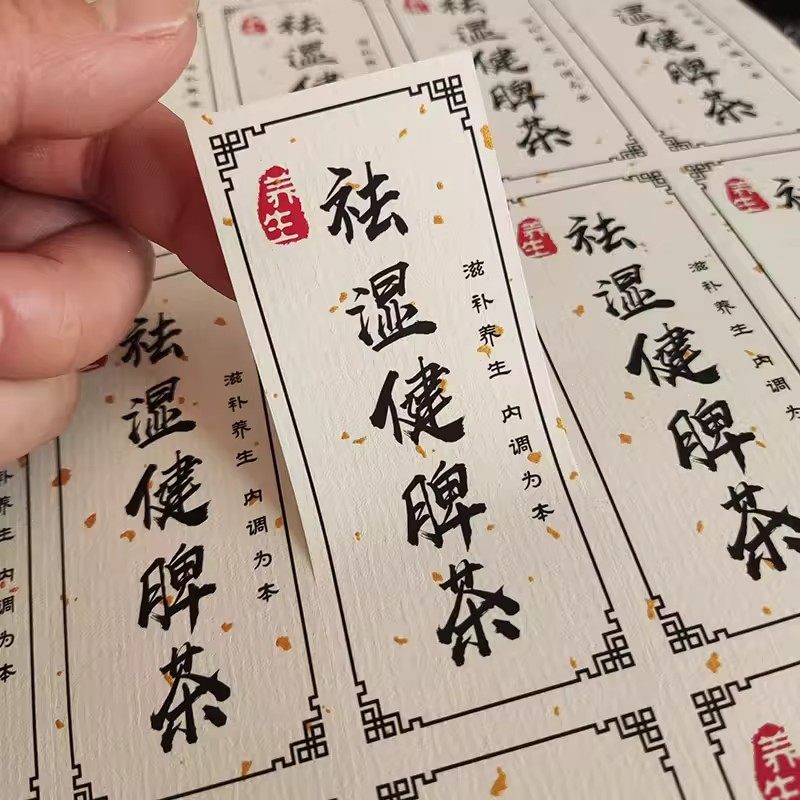 养生
祛湿健脾茶
滋补养生 内调为本
养生
祛湿健
湿健脾茶
湿健脾茶
养生
祛湿健脾茶
滋补养生 内调为
养生
祛湿健脾茶
滋补养生 内调为本
养生 内调为本
养生